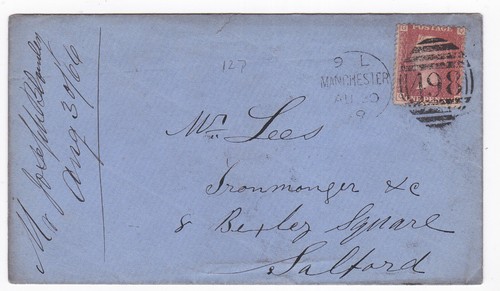 POSTAGE
ONE PENNY
498
127
9 L
MANCHESTER
AU 30
9
Mr Lees
Ironmonger &c
8 Bexley Square
Salford
Mr Joseph
Aug 30/66